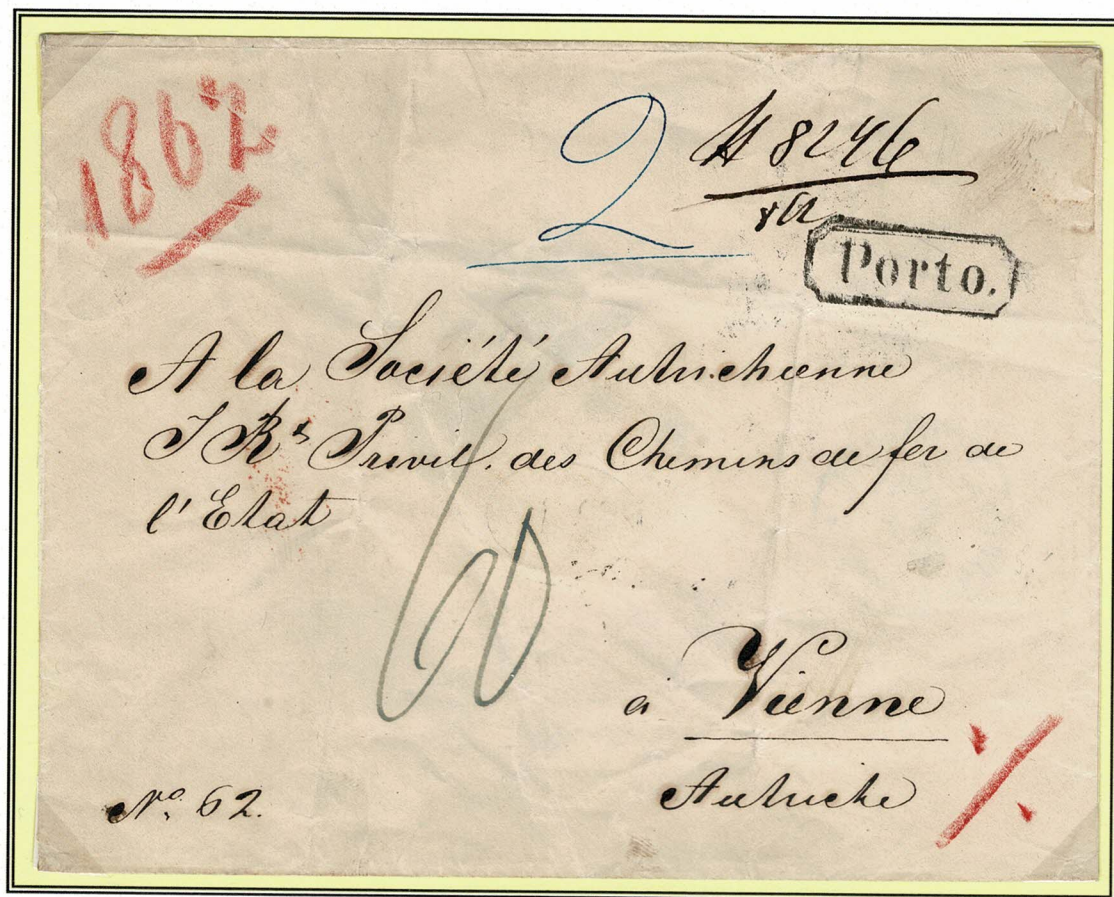 1862
2
8246
Porto.
A la Société Autrichienne
I Rs Privil. des Chemins de fer de
l'Etat
60
à Vienne
Autriche
No. 62.